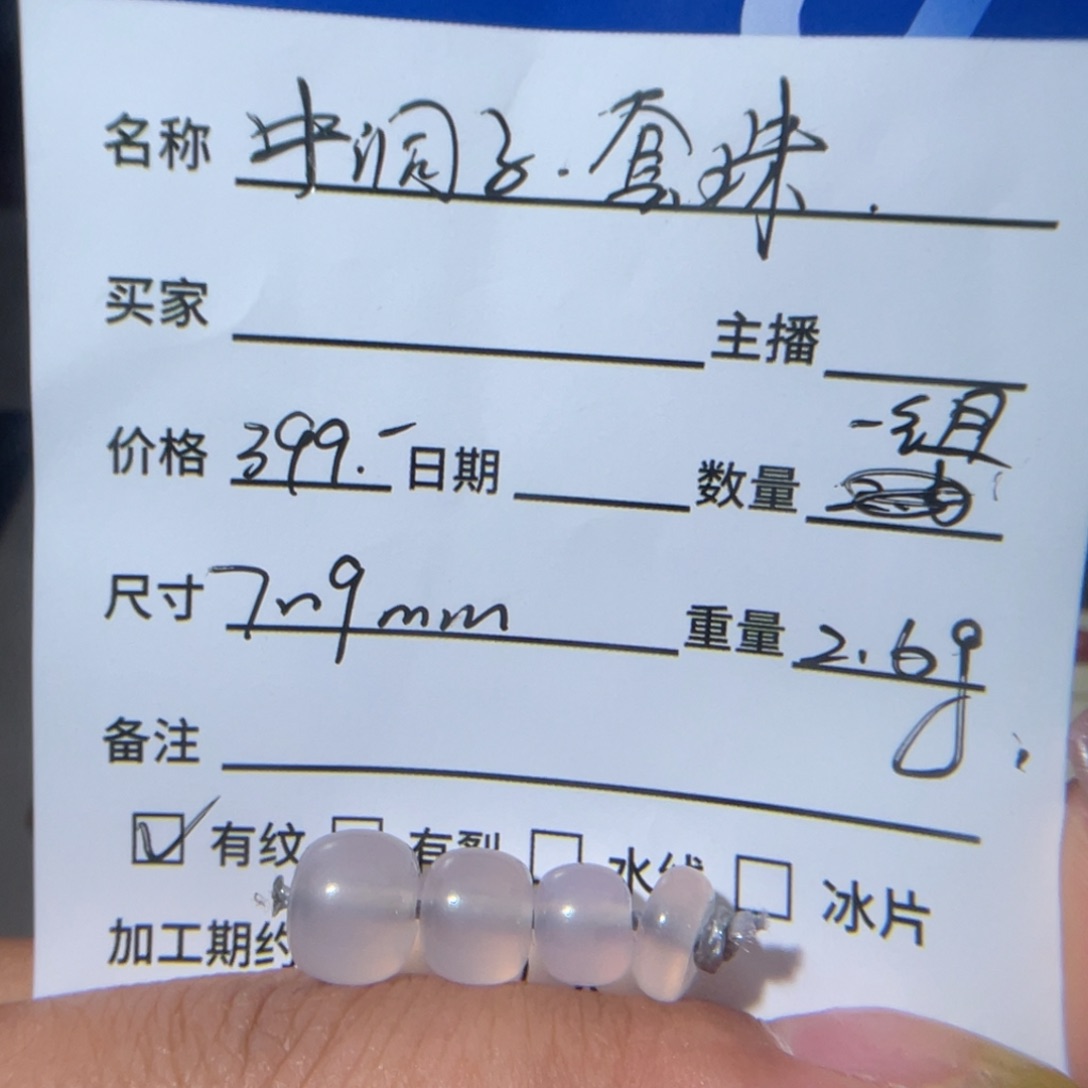 名称 中涧子.套珠.
买家 主播
价格 399.- 日期 数量 一组
尺寸 7n9mm 重量 2.6g.
备注
☑ 有纹 □ 有裂 □ 水线 □ 冰片
加工期约